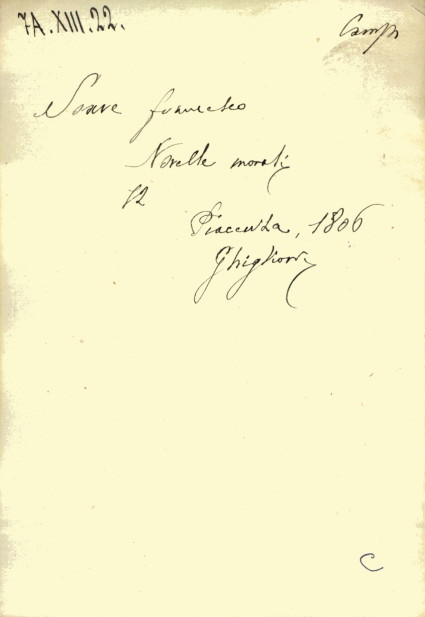 7A.XIII.22.
Camp
Soave Francesco
Novelle morali
12
Piacenza, 1806
Ghiglioni
C